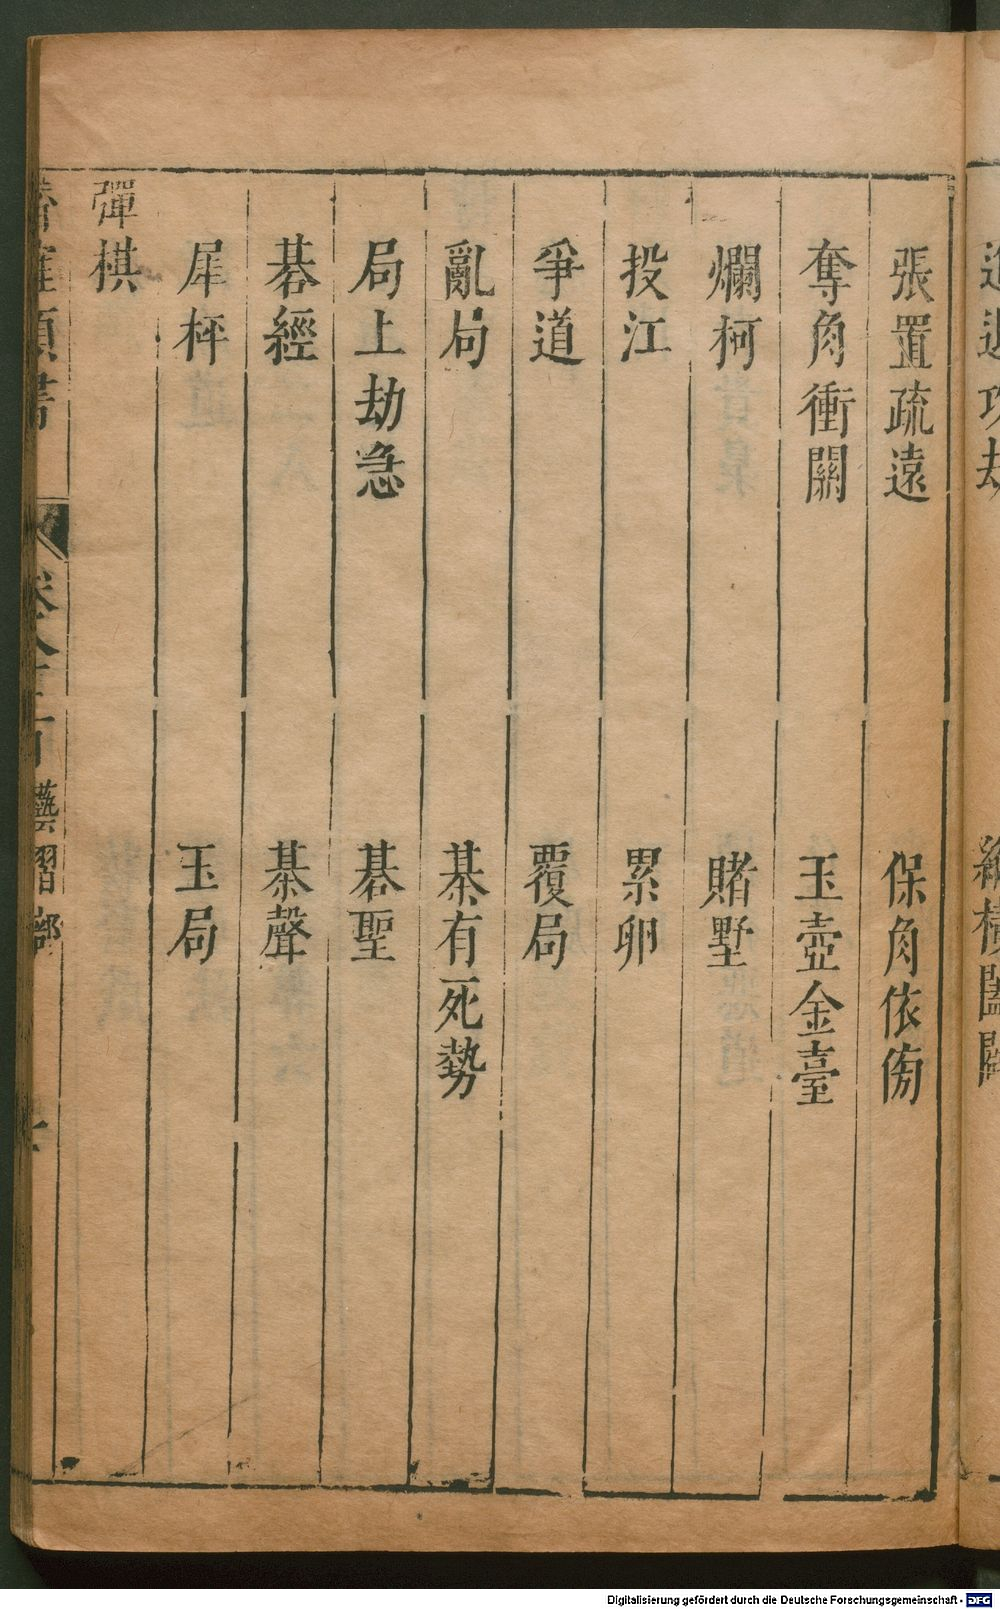 張置疏遠　保角依傍
奪角衝關　玉壺金臺
爛柯　賭墅
投江　累卵
爭道　覆局
亂局　棊有死勢
局上劫急　碁聖
碁經　棊聲
犀枰　玉局
彈棋
Digitalisierung gefördert durch die Deutsche Forschungsgemeinschaft - DFG